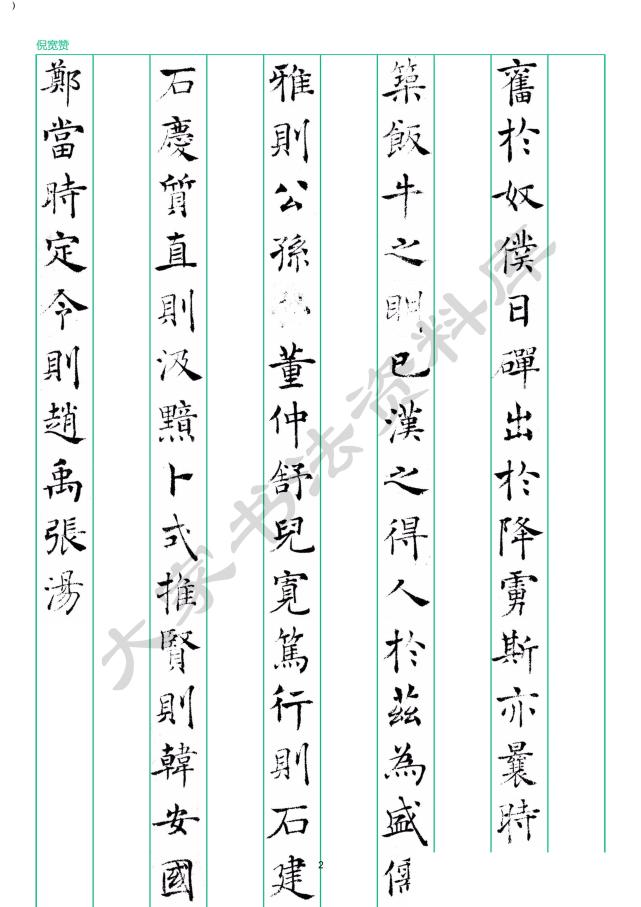 倪宽赞
奮於奴僕日磾出於降虜斯亦曩時
築飯牛之眀已漢之得人於茲為盛儒
雅則公孫董仲舒兒寛篤行則石建
石慶質直則汲黯卜式推賢則韓安國
鄭當時定令則趙禹張湯
大家书法资料库
2